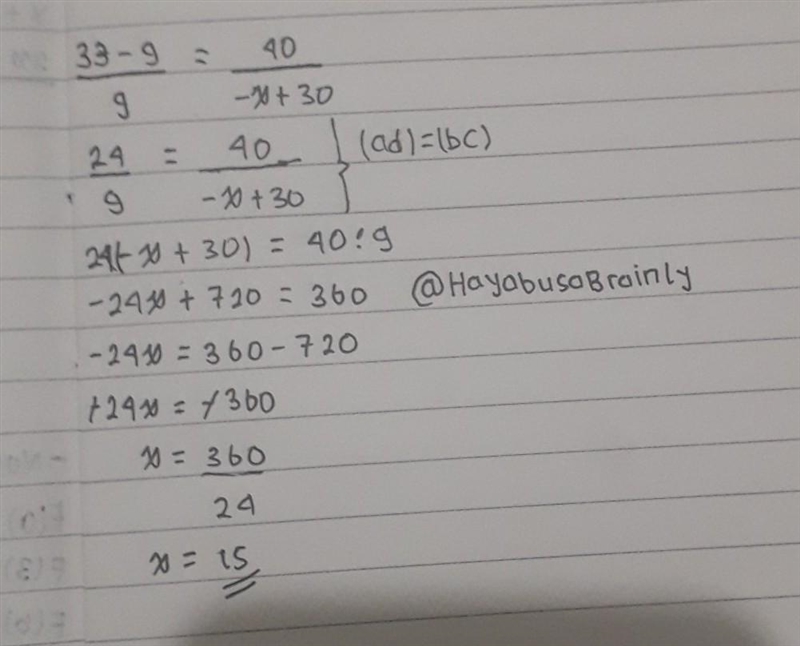 33 - 9 / 9 = 40 / -x + 30
24 / 9 = 40 / -x + 30 } (ad) = (bc)
24(-x + 30) = 40 : 9
-24x + 720 = 360 @HayabusaBrainly
-24x = 360 - 720
+24x = +360
x = 360 / 24
x = 15